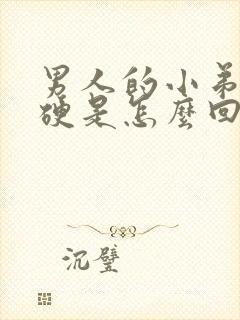 男人的小弟
硬是怎麼回
沉璧